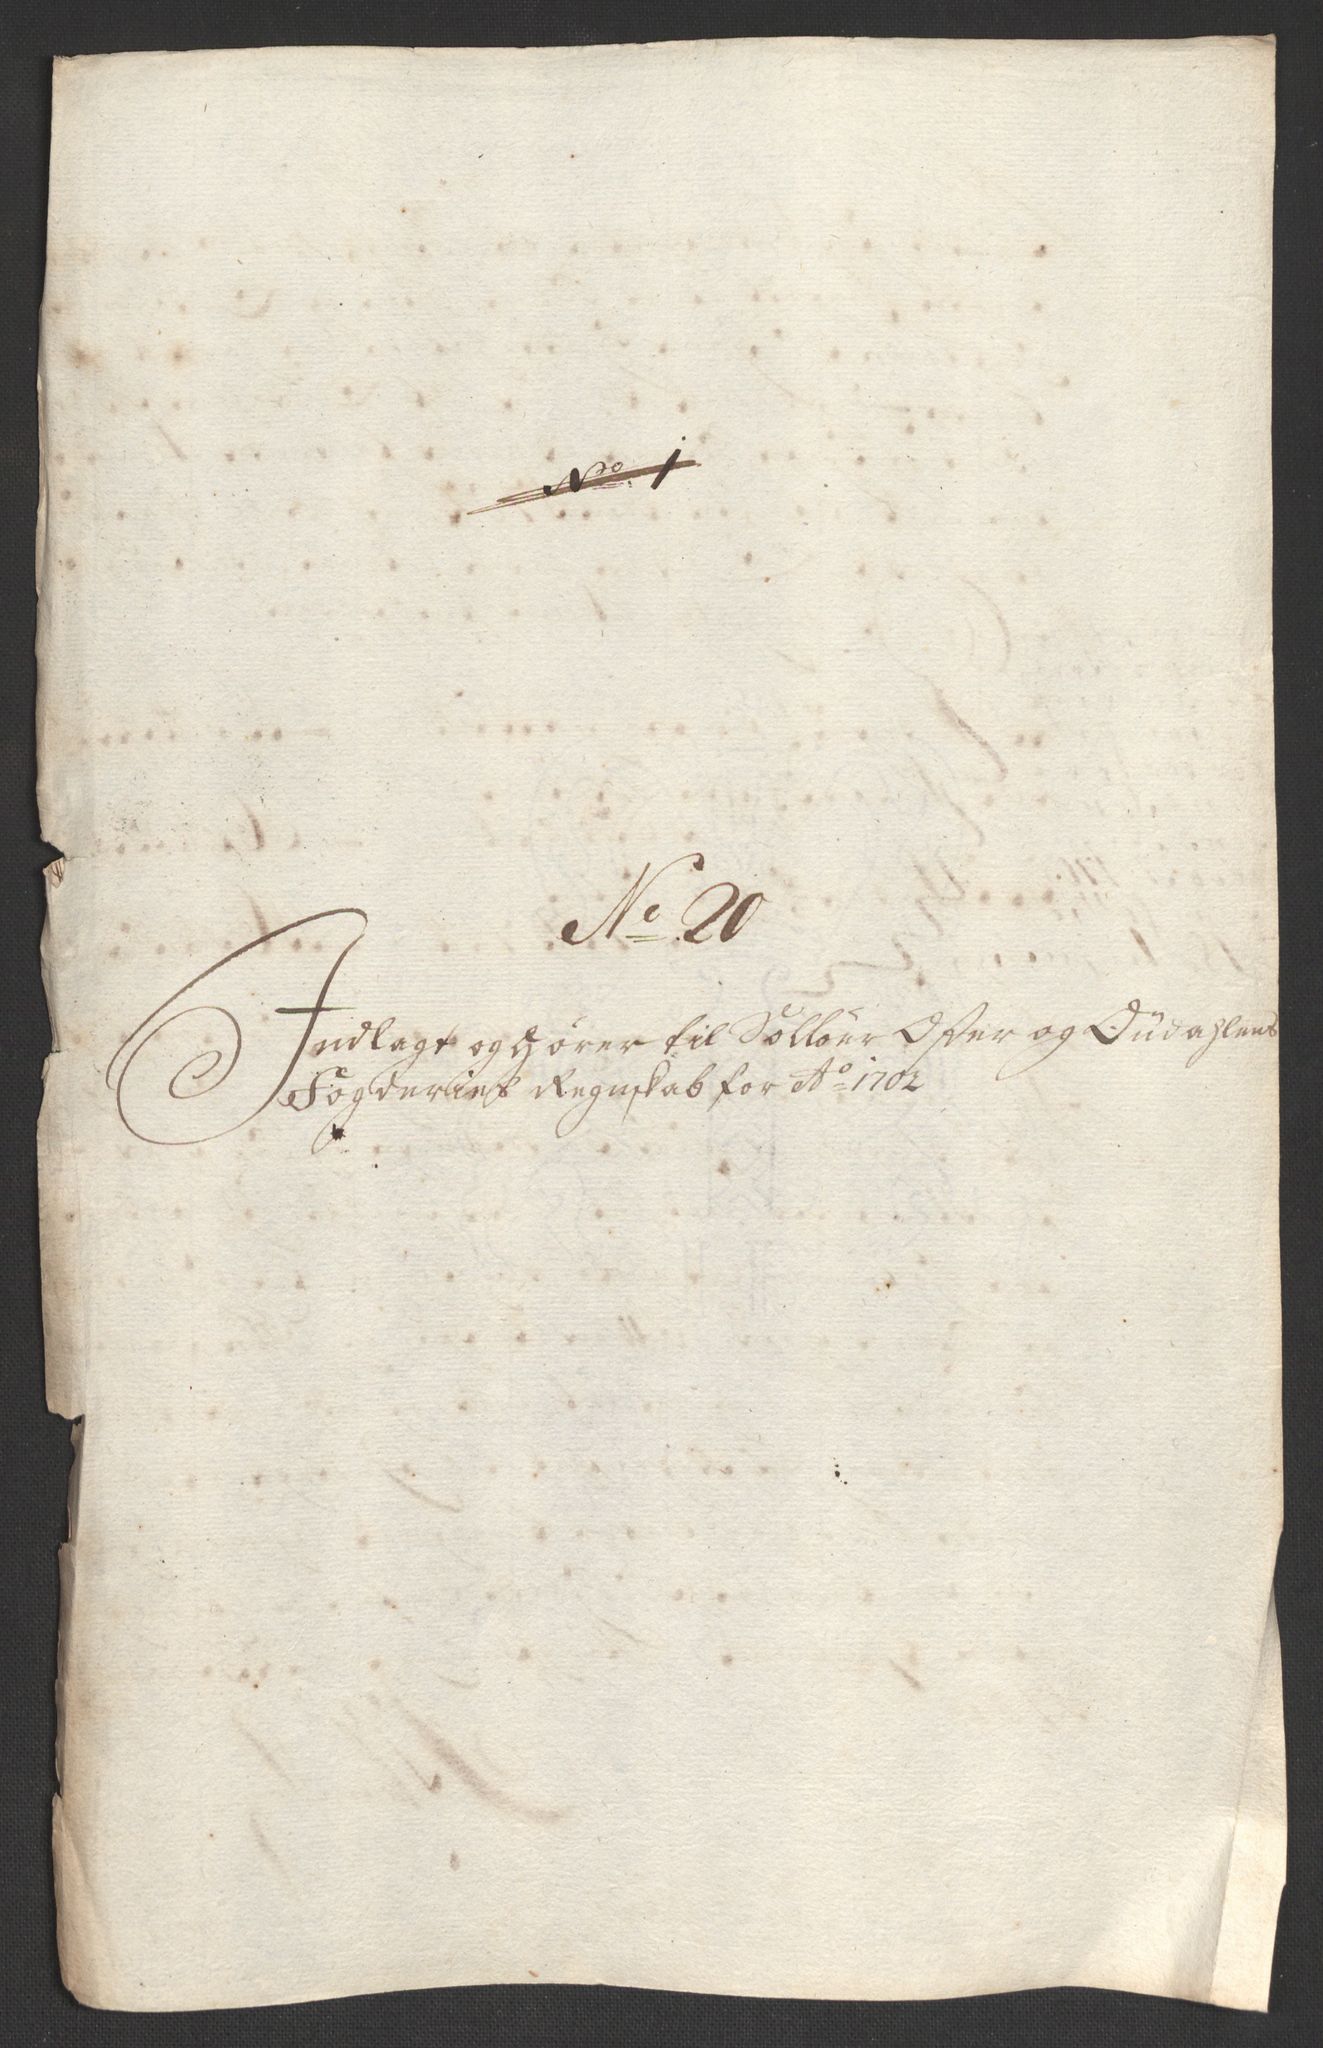 No 1
No 20
Indlagt og Hører til Solløer Øster og Oüdahlens
Fogderies Regnskab for Ao 1702